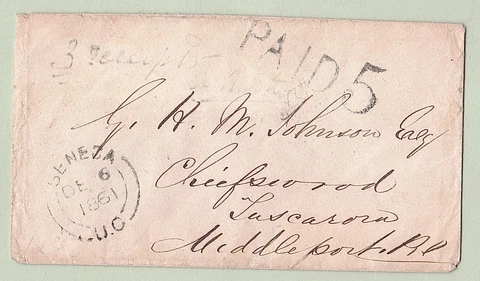 3 receipts
PAID 5
G. H. M. Johnson Esq
Chiefswood
Tuscarora
Middleport P.O
SENECA
DE 6
1861
U.C